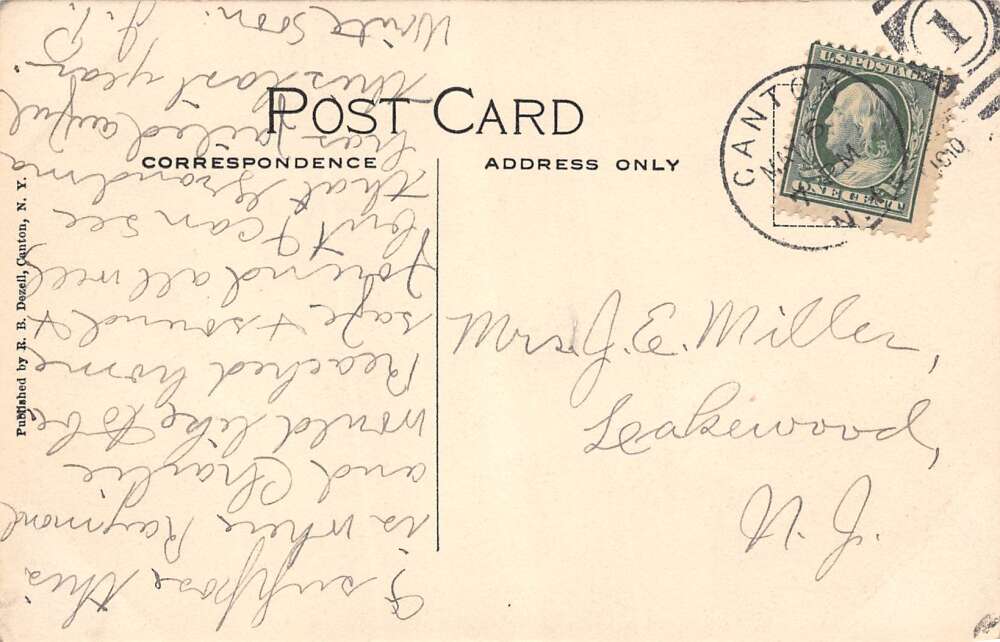 POST CARD
CORRESPONDENCE
ADDRESS ONLY
I suppose this
is where Raymond
and Charlie
would like to be
Reached home
safe & sound &
found all well
but I can see
that Grandma
has failed awful
this last year.
Write soon.
J. P.
Published by R. B. Dezell, Canton, N. Y.
U.S. POSTAGE
ONE CENT
CANTON
MAY
1910
N.Y.
1
Mrs. J. E. Miller,
Lakewood,
N. J.